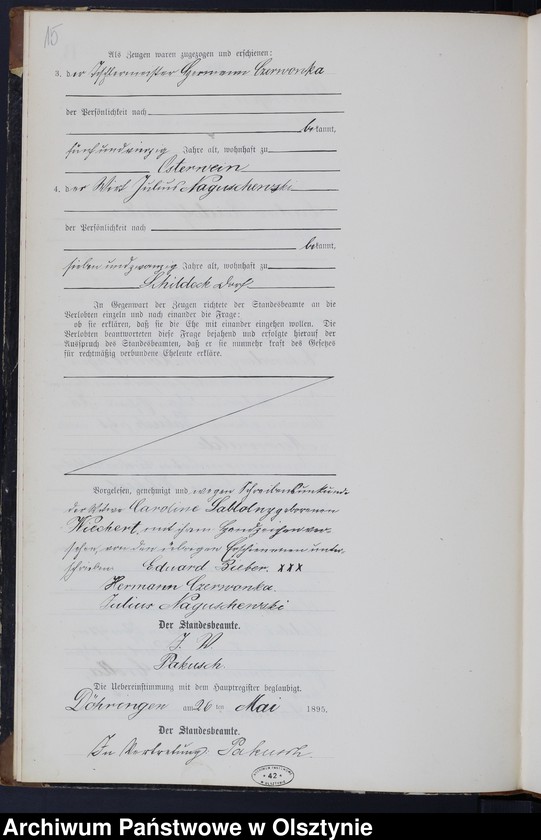 15
Als Zeugen waren zugezogen und erschienen:
3. der Tischlermeister Hermann Czerwonka
der Persönlichkeit nach
bekannt,
fünfundvierzig Jahre alt, wohnhaft zu
Osterwein
4. der Wirt Julius Naguschewski
der Persönlichkeit nach
bekannt,
sieben undzwanzig Jahre alt, wohnhaft zu
Schildeck Dorf
In Gegenwart der Zeugen richtete der Standesbeamte an die
Verlobten einzeln und nach einander die Frage:
ob sie erklären, daß sie die Ehe mit einander eingehen wollen. Die
Verlobten beantworteten diese Frage bejahend und erfolgte hierauf der
Ausspruch des Standesbeamten, daß er sie nunmehr kraft des Gesetzes
für rechtmäßig verbundene Eheleute erkläre.
Vorgelesen, genehmigt und wegen Schreibensunkunde
der Witwe Caroline geborenen
Wiechert, mit ihrem Handzeichen ver-
sehen, von den übrigen Erschienenen unter-
schrieben Eduard Bieber. XXX
Hermann Czerwonka.
Julius Naguschewski
Der Standesbeamte.
J. V.
Pakusch.
Die Uebereinstimmung mit dem Hauptregister beglaubigt.
Döhringen am 26 ten Mai 1895.
Der Standesbeamte.
In Vertretung. Pakusch.
42
W OLSZTYNIE
Archiwum Państwowe w Olsztynie